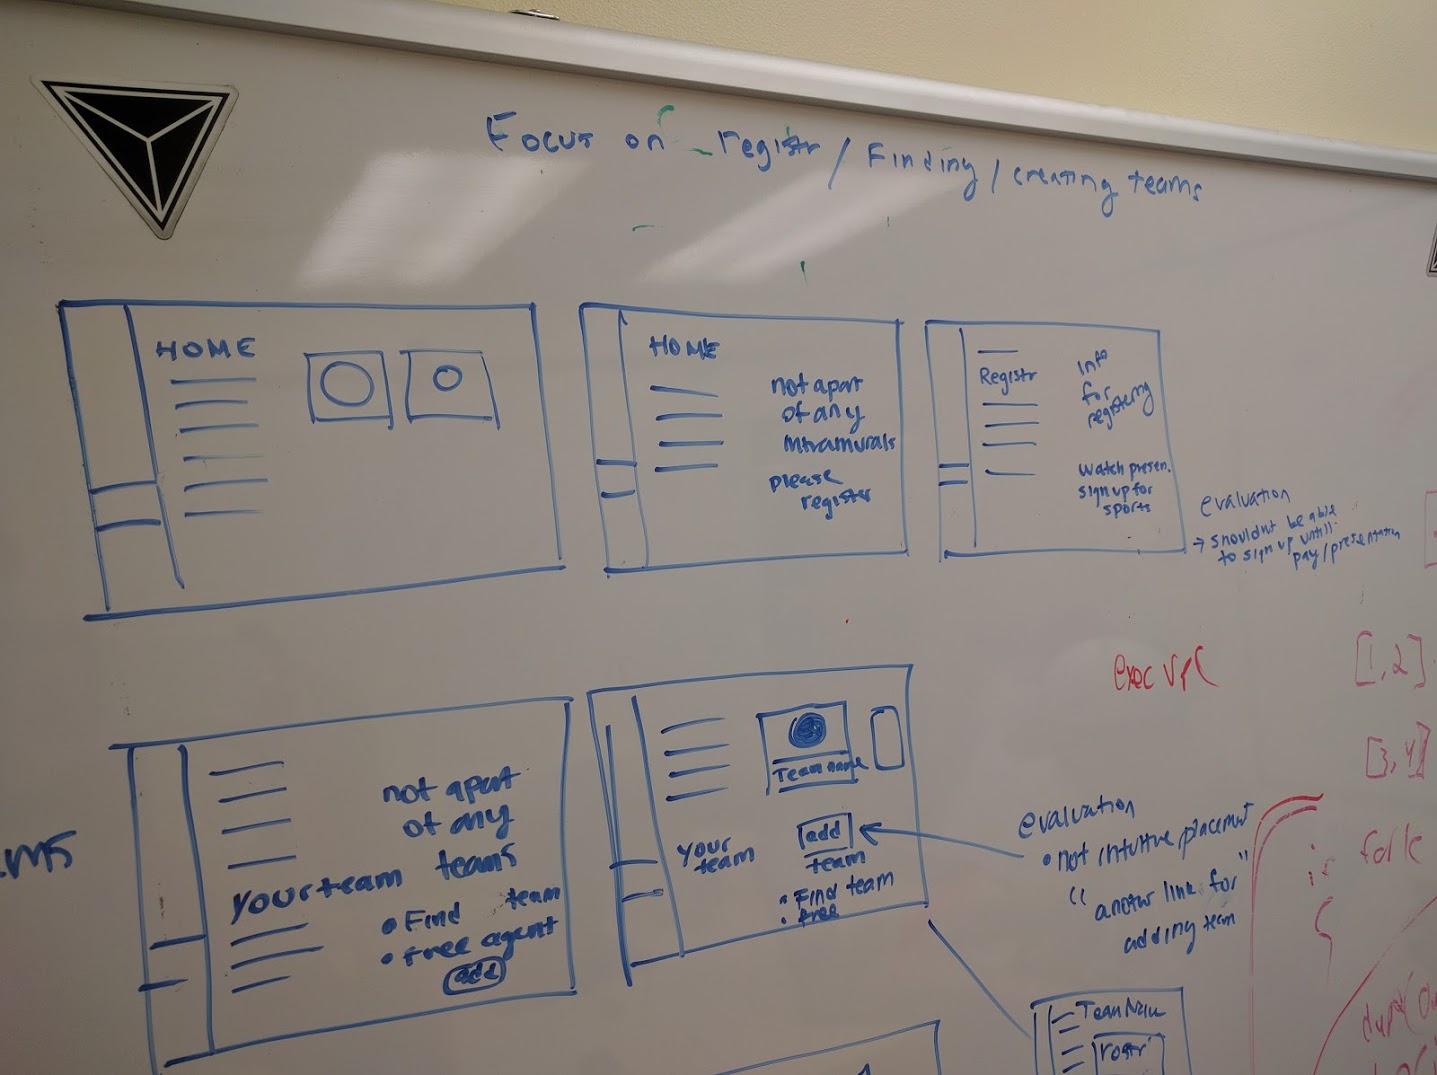 Focus on registr / Finding / creating teams
HOME
HOME
not apart
of any
intramurals
please
register
Registr
Info
for
registering
watch presen.
sign up for
sports
evaluation
→ shouldnt be able
to sign up untill
pay/presentation
[1,2]
[3,4]
not apart
of any
teams
your team
• Find team
• Free agent
add
Team name
your
team
add
team
• Find team
• free
evaluation
• not intuitive placement
" another link for "
adding team
Team Name
rostr